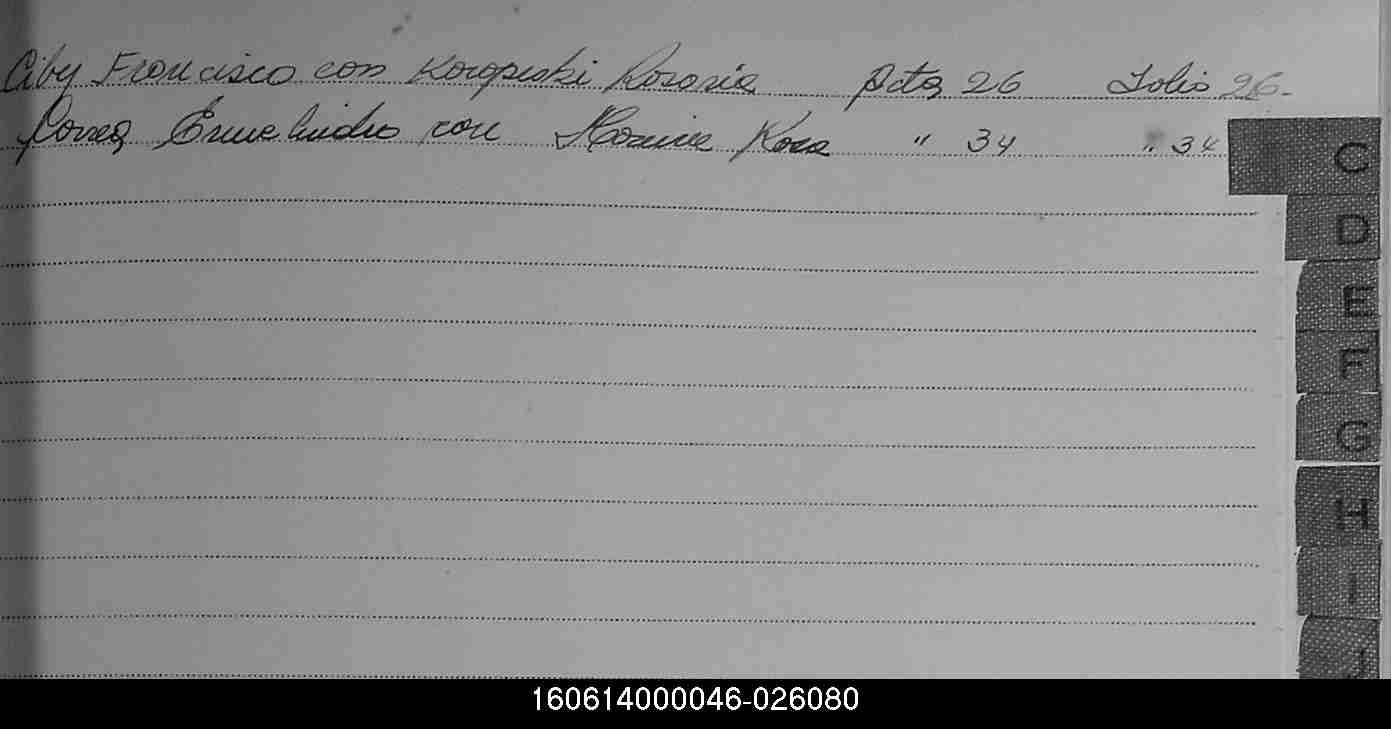 Ciby Francisco con Koropeski Rosaria Acta 26 Folio 26.
Correa Ermelindro con Rosa " 34 " 34
C
D
E
F
G
H
I
J
160614000046-026080